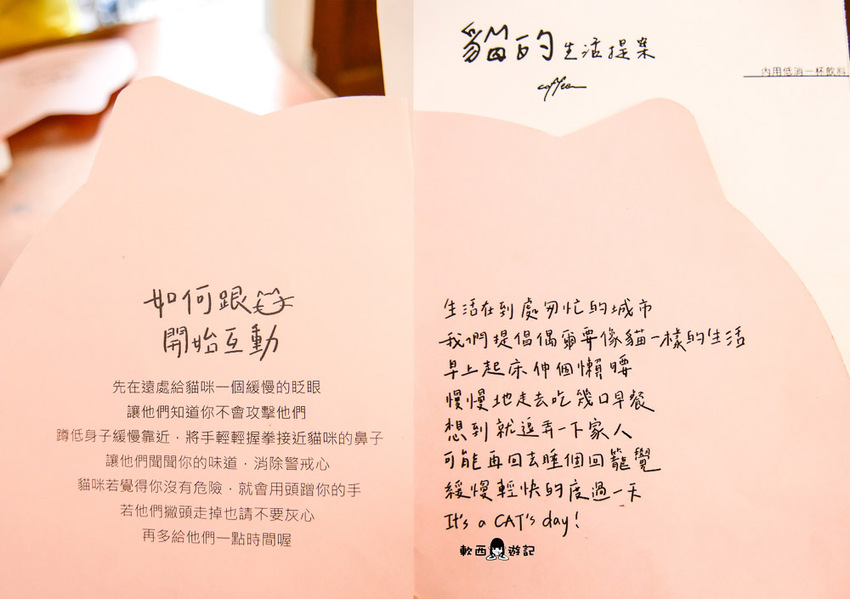 如何跟
開始互動
先在遠處給貓咪一個緩慢的眨眼
讓他們知道你不會攻擊他們
蹲低身子緩慢靠近，將手輕輕握拳接近貓咪的鼻子
讓他們聞聞你的味道，消除警戒心
貓咪若覺得你沒有危險，就會用頭蹭你的手
若他們撇頭走掉也請不要灰心
再多給他們一點時間喔
貓的生活提案
內用低消一杯飲料
生活在到處匆忙的城市
我們提倡偶爾要像貓一樣的生活
早上起床伸個懶腰
慢慢地走去吃幾口早餐
想到就逗弄一下家人
可能再回去睡個回籠覺
緩慢輕快的度過一天
It's a CAT's day!
軟西遊記